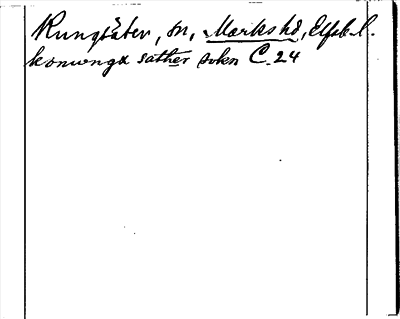 Kungsäter, sn, Marks hd, Elfsb. l.
konungx sæther sokn C. 24